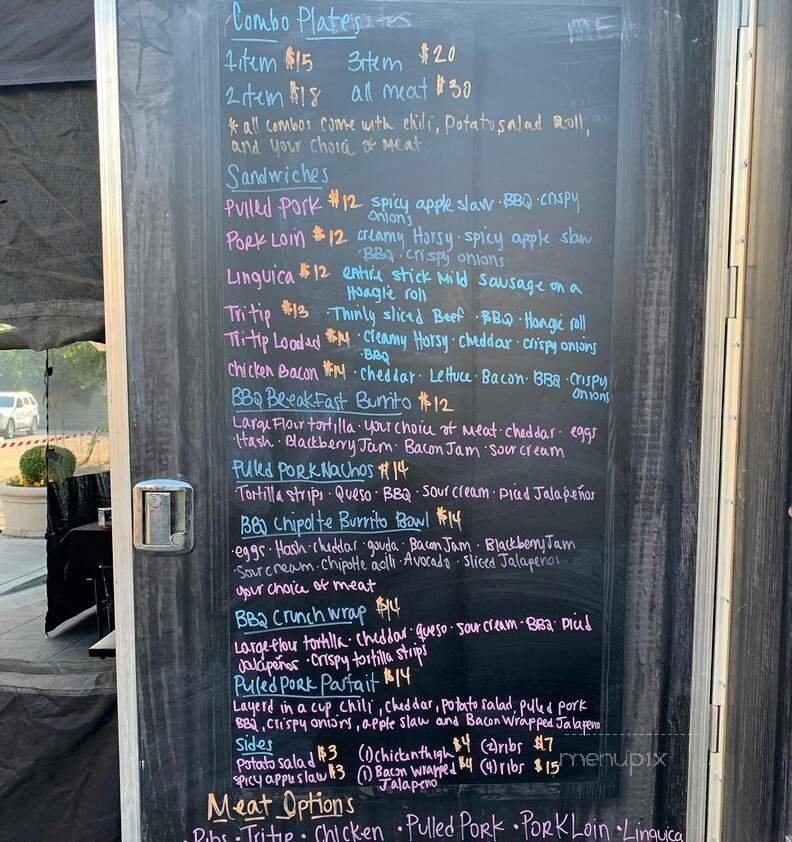 Combo Plates
1 item $15 3 item $20
2 item $18 all meat $30
* all combos come with chili, potato salad Roll,
and your choice of meat
Sandwiches
Pulled Pork $12 spicy apple slaw · BBQ · crispy
onions
Pork Loin $12 creamy Horsy · spicy apple slaw
· BBQ · crispy onions
Linguica $12 entire stick Mild Sausage on a
Hoagie roll
Tri tip $13 · Thinly sliced Beef · BBQ · Hoagie roll
Tri-tip Loaded $14 · creamy Horsy · cheddar · crispy onions
· BBQ
Chicken Bacon $14 · cheddar · Lettuce · Bacon · BBQ · Crispy
onions
BBQ BreakFast Burrito $12
Large Flour tortilla · your choice of meat · cheddar · eggs
· Hash · Blackberry Jam · Bacon Jam · sour cream
Pulled Pork Nachos $14
· Tortilla strips · Queso · BBQ · sour cream · Diced Jalapeños
BBQ Chipolte Burrito Bowl $14
· eggs · Hash · cheddar · gouda · Bacon Jam · Blackberry Jam
· Sour cream · chipotle aoli · Avocado · sliced Jalapenos
your choice of meat
BBQ Crunch wrap $14
Large-flour tortilla · cheddar · queso · sour cream · BBQ · Diced
Jalapeños · crispy tortilla strips
Pulled Pork Parfait $14
Layerd in a cup chili, cheddar, potato salad, pulled pork
BBQ, crispy onions, apple slaw and Bacon Wrapped Jalapeno
Sides
potato salad $3 (1) chicken thigh $4 (2) ribs $7
spicy apple slaw $3 (1) Bacon wrapped $4 (4) ribs $15
Jalapeno
menupix
Meat Options
· Ribs · Tri tip · Chicken · Pulled Pork · Pork Loin · Linguica